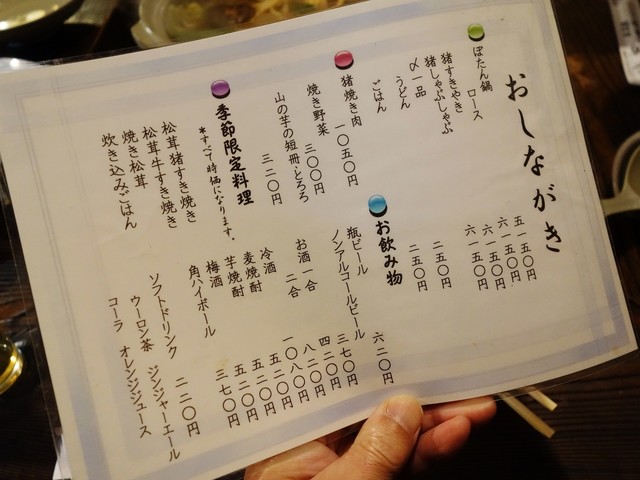 おしながき
ぼたん鍋 五一五〇円
ロース 六一五〇円
猪すきやき 六一五〇円
猪しゃぶしゃぶ 六一五〇円
〆一品
うどん 二五〇円
ごはん 二五〇円
猪焼き肉 一〇五〇円
焼き野菜 三〇〇円
山の芋の短冊・とろろ 三二〇円
季節限定料理
*すべて時価になります。
松茸猪すき焼き
松茸牛すき焼き
焼き松茸
炊き込みごはん
お飲み物
瓶ビール 六二〇円
ノンアルコールビール 三七〇円
お酒一合 四二〇円
二合 八二〇円
冷酒 一〇八〇円
麦焼酎 五二〇円
芋焼酎 五二〇円
梅酒 五二〇円
角ハイボール 三七〇円
ソフトドリンク 二二〇円
ウーロン茶 ジンジャーエール
コーラ オレンジジュース